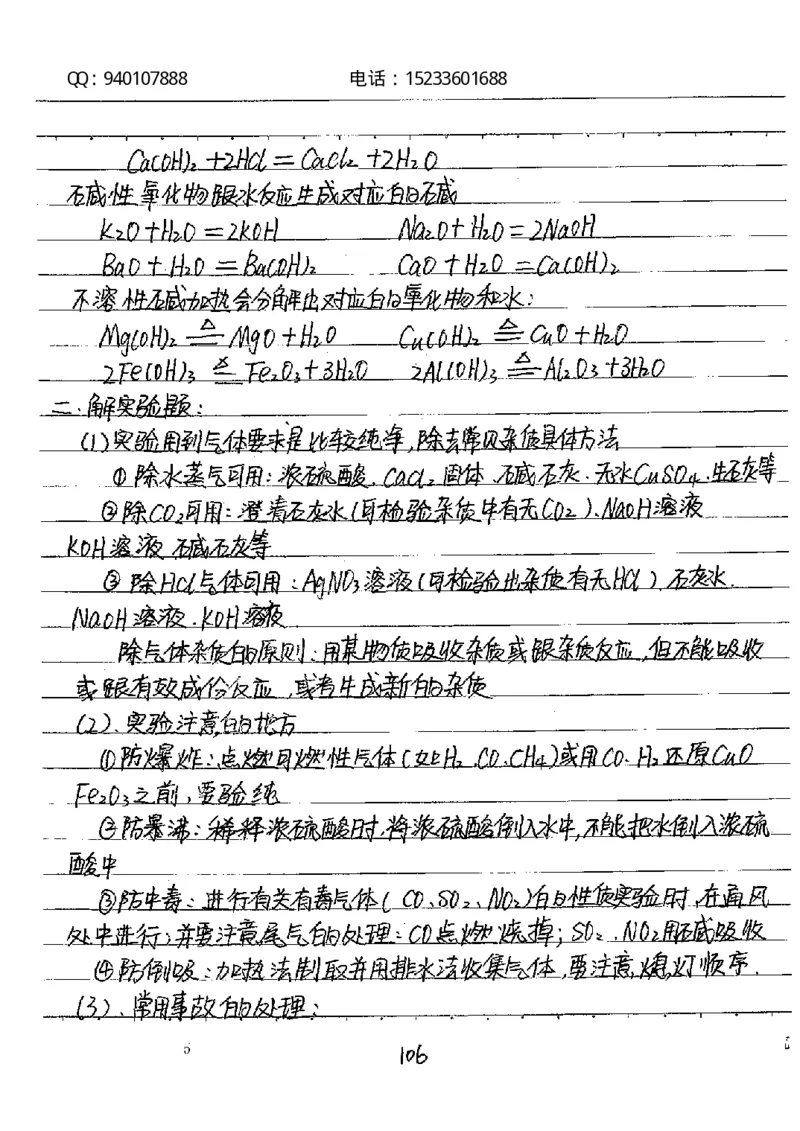 QQ：940107888 电话：15233601688
Ca(OH)₂ +2HCl = CaCl₂ +2H₂O
碱性氧化物跟水反应生成对应的碱
K₂O+H₂O =2KOH Na₂O+H₂O=2NaOH
BaO+H₂O =Ba(OH)₂ CaO+H₂O =Ca(OH)₂
不溶性碱加热会分解出对应的氧化物和水：
Mg(OH)₂ ≜ MgO+H₂O Cu(OH)₂ ≜ CuO+H₂O
2Fe(OH)₃ ≜ Fe₂O₃+3H₂O 2Al(OH)₃ ≜ Al₂O₃+3H₂O
二.解实验题：
(1)实验用到气体要求是比较纯净,除去常见杂质具体方法
①除水蒸气可用：浓硫酸.CaCl₂固体.碱石灰.无水CuSO₄.生石灰等
②除CO₂可用：澄清石灰水(可检验杂质中有无CO₂).NaOH溶液
KOH溶液 碱石灰等
③除HCl气体可用：AgNO₃溶液(可检验出杂质有无HCl).石灰水.
NaOH溶液.KOH溶液.
除气体杂质的原则：用某物质吸收杂质或跟杂质反应,但不能吸收
或跟有效成份反应,或者生成新的杂质
(2).实验注意的地方
①防爆炸：点燃可燃性气体(如H₂.CO.CH₄)或用CO.H₂还原CuO
Fe₂O₃之前,要验纯
②防暴沸：稀释浓硫酸时,将浓硫酸倒入水中,不能把水倒入浓硫
酸中
③防中毒：进行有关有毒气体(CO、SO₂、NO₂)的性质实验时,在通风
处中进行;并要注意尾气的处理：CO点燃烧掉;SO₂.NO₂用碱吸收
④防倒吸：加热法制取并用排水法收集气体,要注意熄灯顺序.
(3).常用事故的处理：
106